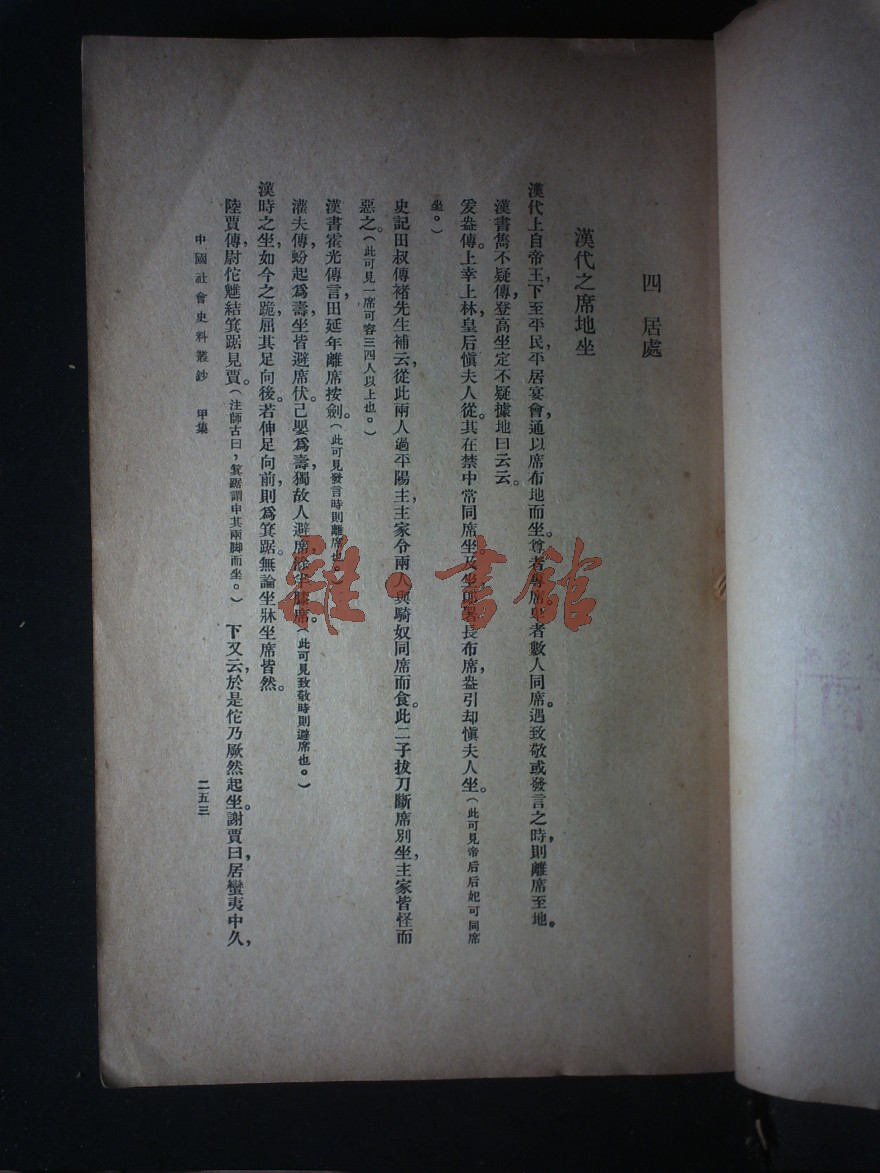 四 居處
漢代之席地坐
漢代上自帝王，下至平民，平居宴會，通以席布地而坐。尊者專席，卑者數人同席。遇致敬或發言之時，則離席至地。
漢書雋不疑傳，登高坐定，不疑據地曰云云。
爰盎傳。上幸上林，皇后愼夫人從。其在禁中常同席坐。及坐，郎署長布席，盎引却愼夫人坐。（此可見帝后后妃可同席
坐。）
史記田叔傳褚先生補云，從此兩人過平陽主，主家令兩人與騎奴同席而食。此二子拔刀斷席別坐，主家皆怪而
惡之。（此可見一席可容三四人以上也。）
漢書霍光傳言，田延年離席按劍。（此可見發言時則離席也。）
灌夫傳，蚡起爲壽，坐皆避席伏。己嬰爲壽，獨故人避席，餘半膝席。（此可見致敬時則避席也。）
漢時之坐，如今之跪，屈其足向後。若伸足向前，則爲箕踞。無論坐牀坐席皆然。
陸賈傳，尉佗魋結箕踞見賈。（注師古曰，箕踞謂申其兩脚而坐。） 下又云，於是佗乃厥然起坐。謝賈曰，居蠻夷中久，
中國社會史料叢鈔 甲集
二五三
雜·書館